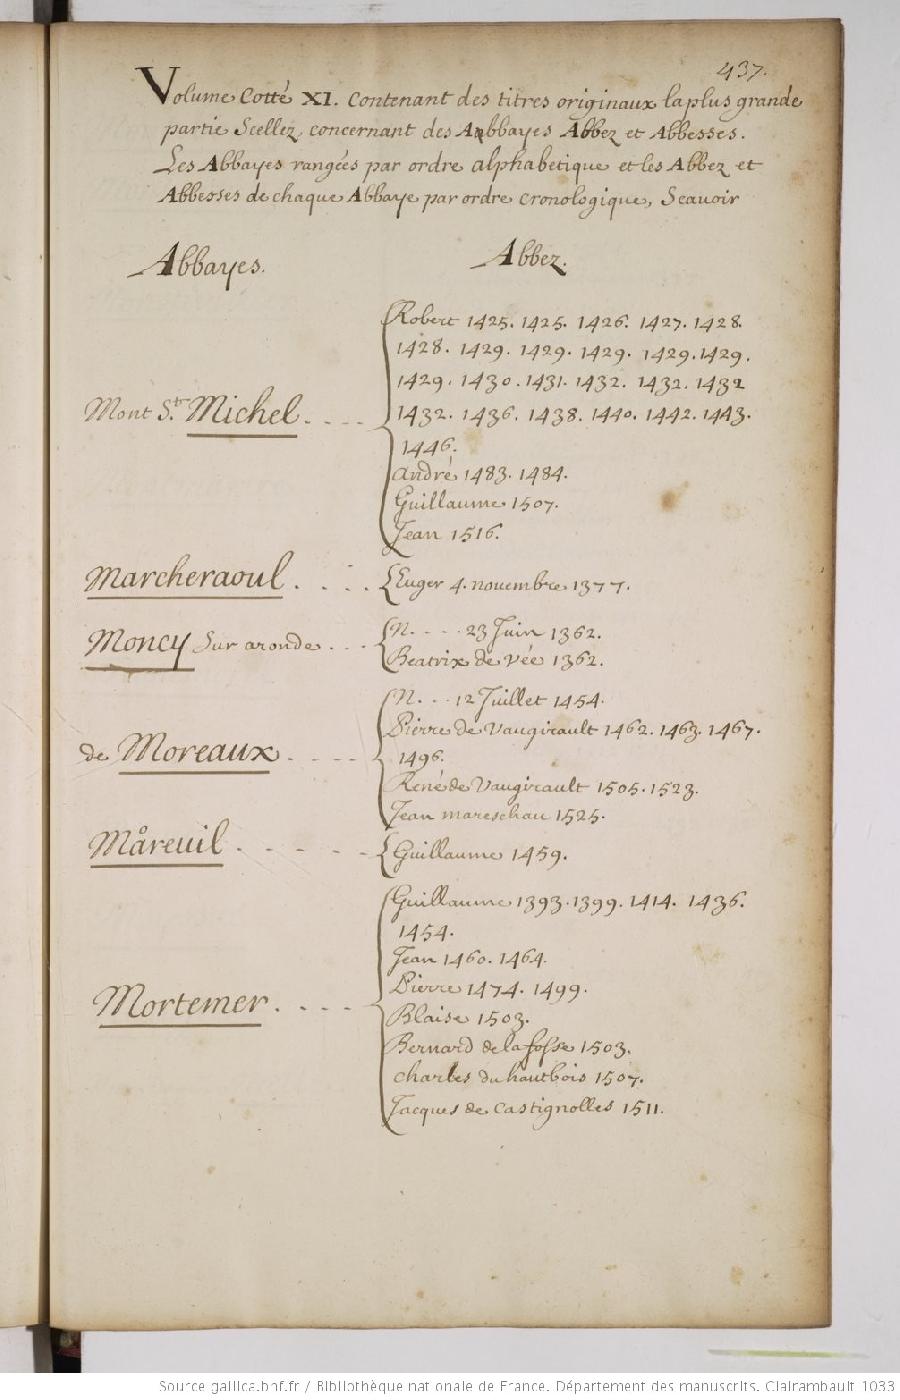 437.
Volume Cotté XI. Contenant des titres originaux la plus grande
partie Scellez, concernant des Abbayes Abbez et Abbesses.
Les Abbayes rangées par ordre alphabetique et les Abbez et
Abbesses de chaque Abbaye par ordre cronologique, Scavoir
Abbayes.
Abbez.
Mont St. Michel
Robert 1425. 1425. 1426. 1427. 1428.
1428. 1429. 1429. 1429. 1429. 1429.
1429. 1430. 1431. 1432. 1432. 1432
1432. 1436. 1438. 1440. 1442. 1443.
1446.
André 1483. 1484.
Guillaume 1507.
Jean 1516.
Marcheraoul
Euger 4. novembre 1377.
Moncy Sur aronde
N. 23 Juin 1362.
Beatrix de Vée 1362.
de Moreaux
N. 12 Juillet 1454.
Pierre de Vaugirault 1462. 1463. 1467.
1496.
René de Vaugirault 1505. 1523.
Jean mareschau 1525.
Måreuil
Guillaume 1459.
Mortemer
Guillaume 1393. 1399. 1414. 1436.
1454.
Jean 1460. 1464.
Pierre 1474. 1499.
Blaise 1503.
Bernard de la fosse 1503.
charles du hautbois 1507.
Jacques de Castignolles 1511.
Source gallica.bnf.fr / Bibliothèque nationale de France. Département des manuscrits. Clairambault 1033